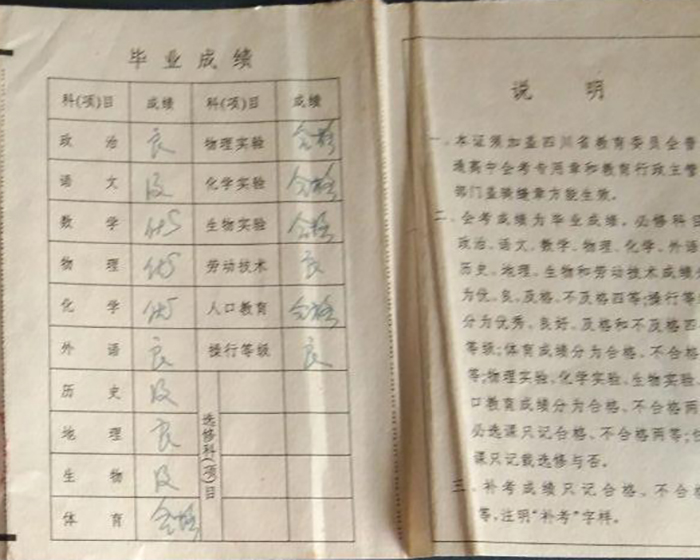 毕业成绩
科(项)目 成绩 科(项)目 成绩
政治 良 物理实验 合格
语文 及 化学实验 合格
数学 优 生物实验 合格
物理 优 劳动技术 良
化学 优 人口教育 合格
外语 良 操行等级 良
历史 及
地理 良
生物 及
体育 合格
选修科(项)目
说明
一、本证须加盖四川省教育委员会普
通高中会考专用章和教育行政主管
部门盖骑缝章方能生效。
二、会考成绩为毕业成绩。必修科目
政治、语文、数学、物理、化学、外语
历史、地理、生物和劳动技术成绩分
为优、良、及格、不及格四等;操行等
分为优秀、良好、及格和不及格四
等级;体育成绩分为合格、不合格
等;物理实验、化学实验、生物实验、
口教育成绩分为合格、不合格两
必选课只记合格、不合格两等;
课只记载选修与否。
三、补考成绩只记合格、不合格
等,注明“补考”字样。